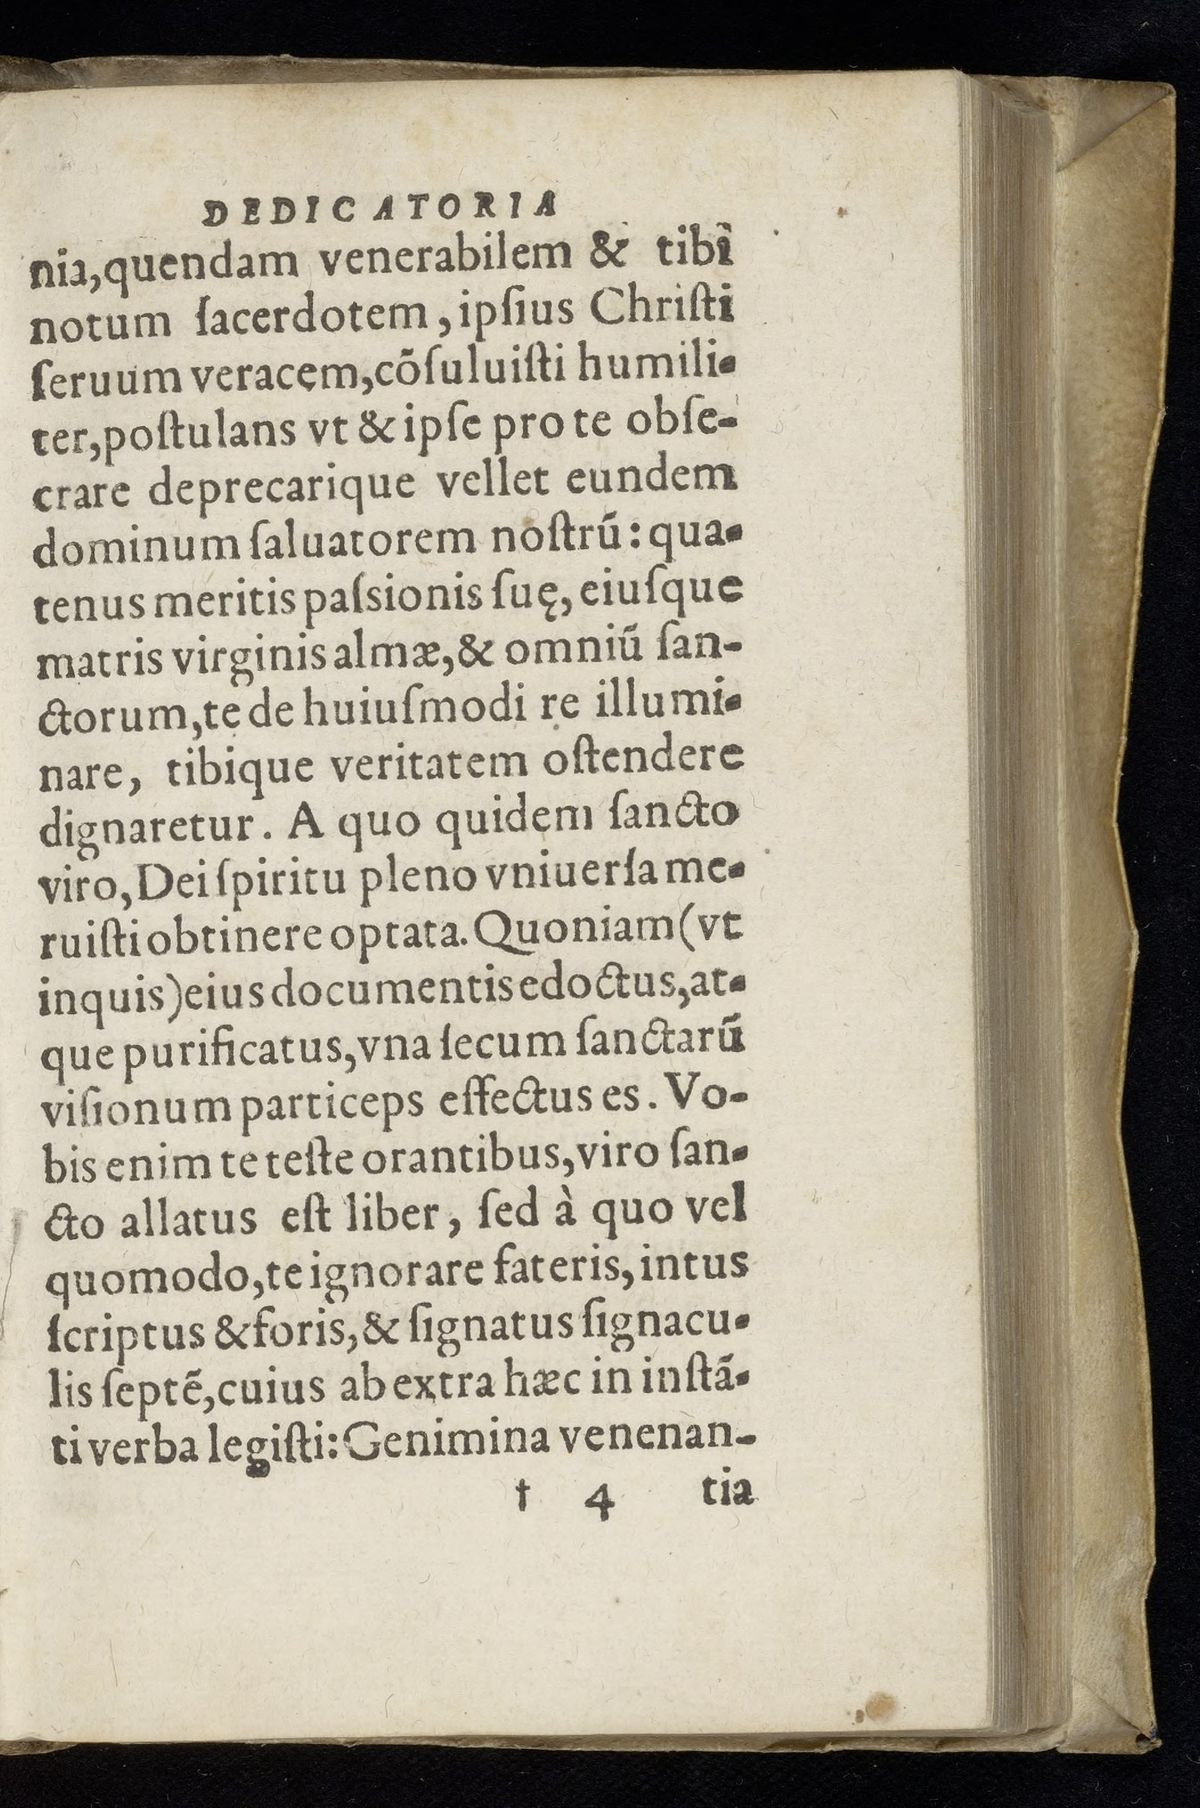 DEDICATORIA
nia,quendam venerabilem & tibi
notum ſacerdotem, ipſius Chriſti
ſeruum veracem,cõſuluiſti humili-
ter,poſtulans vt & ipſe pro te obſe-
crare deprecarique vellet eundem
dominum ſaluatorem noſtrũ: qua-
tenus meritis paſsionis ſuę, eiuſque
matris virginis almæ,& omniũ ſan-
ctorum,te de huiuſmodi re illumi-
nare, tibique veritatem oſtendere
dignaretur. A quo quidem ſancto
viro,Dei ſpiritu pleno vniuerſa me-
ruiſti obtinere optata. Quoniam (vt
inquis) eius documentis edoctus,at-
que purificatus,vna ſecum ſanctarũ
viſionum particeps effectus es. Vo-
bis enim te teſte orantibus,viro ſan-
cto allatus eſt liber, ſed à quo vel
quomodo,te ignorare fateris, intus
ſcriptus & foris,& ſignatus ſignacu-
lis ſeptẽ,cuius ab extra hæc in inſtã-
ti verba legiſti: Genimina venenan-
† 4 tia